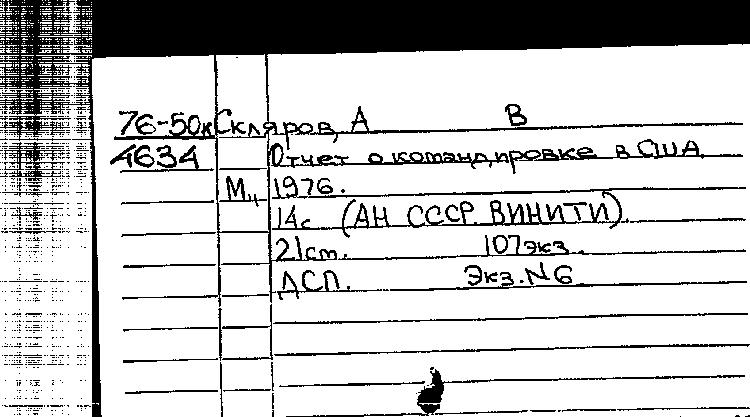 76-50к Скляров, А В
4634 Отчет о командировке в США.
М., 1976.
14с (АН СССР ВИНИТИ).
21см. 107экз.
ДСП. Экз.N6